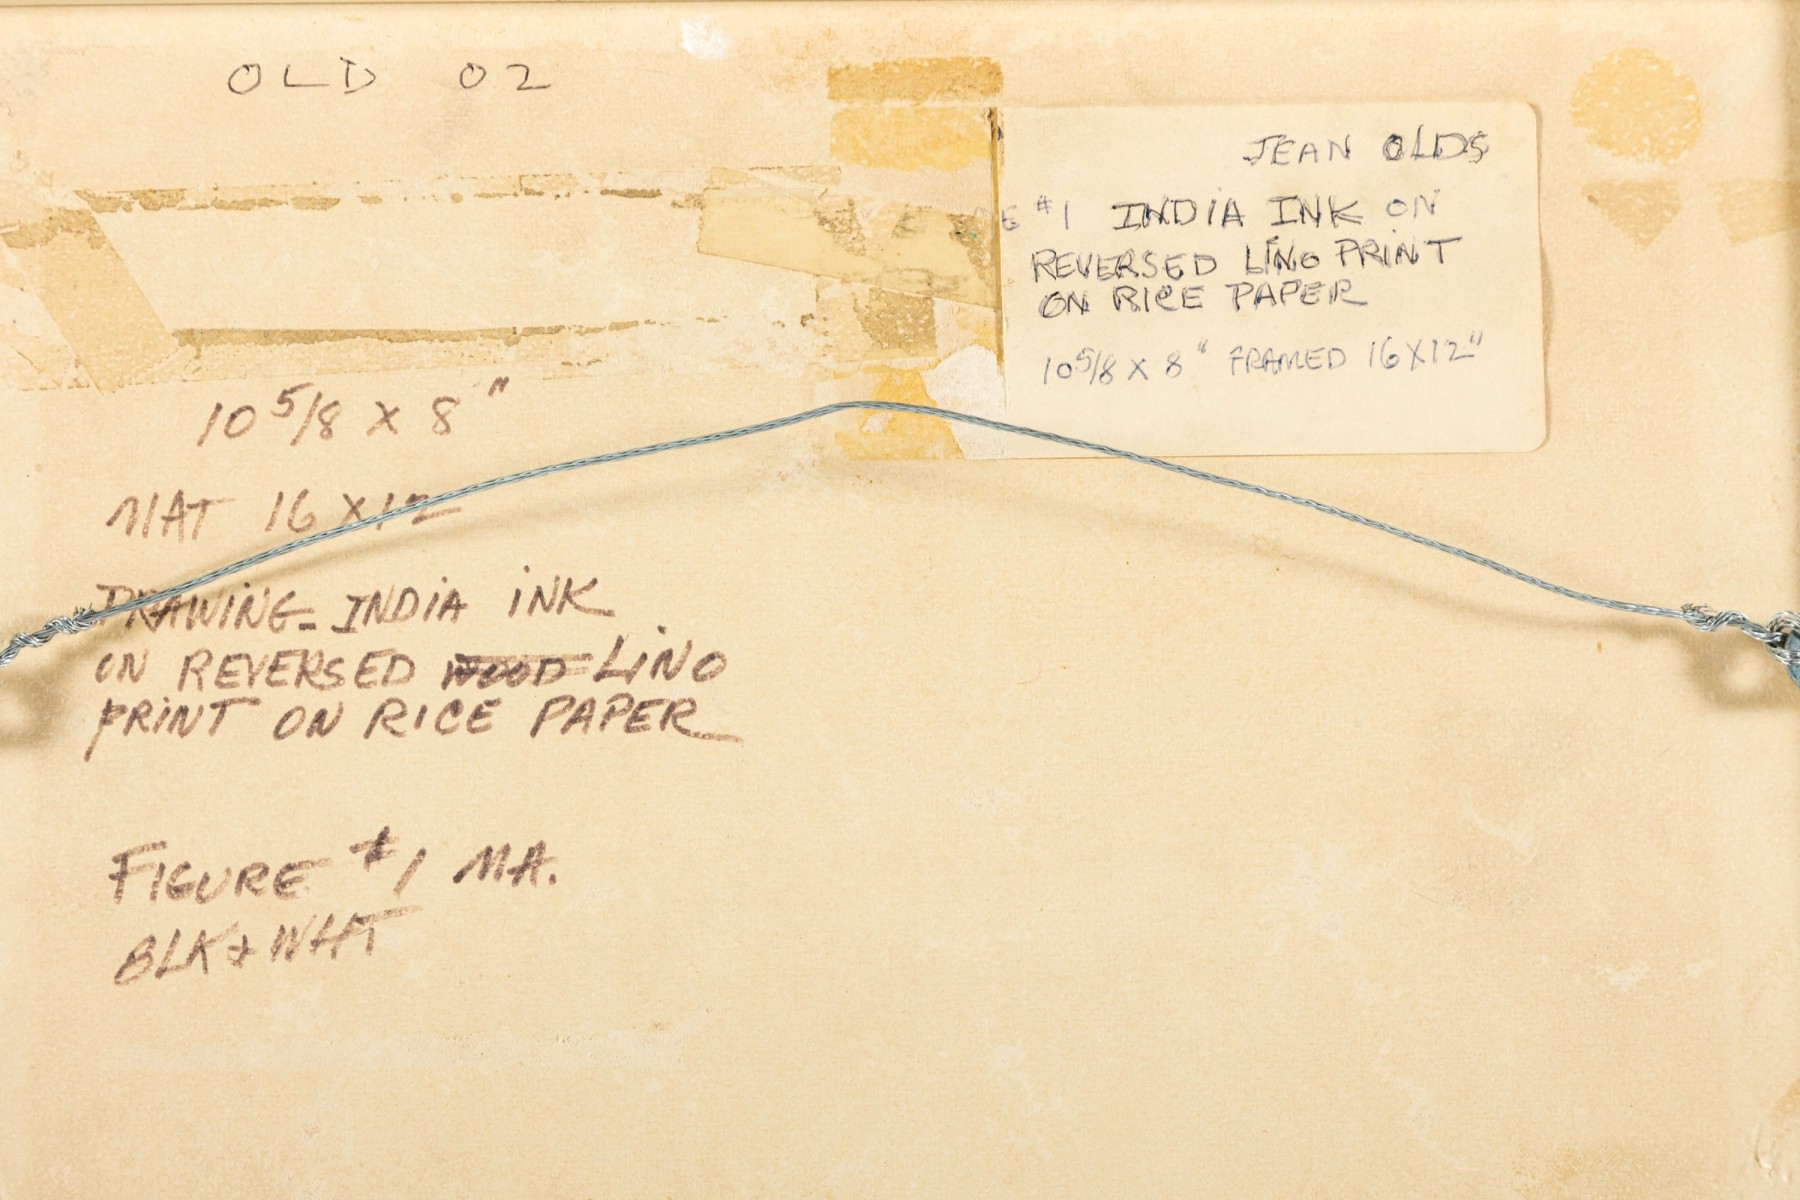 OLD 02
JEAN OLDS
E #1 INDIA INK ON
REVERSED LINO PRINT
ON RICE PAPER
10 5/8 X 8" FRAMED 16X12"
10 5/8 X 8"
MAT 16 X 12
DRAWING - INDIA INK
ON REVERSED WOOD LINO
PRINT ON RICE PAPER
FIGURE #1 MA.
BLK + WHT